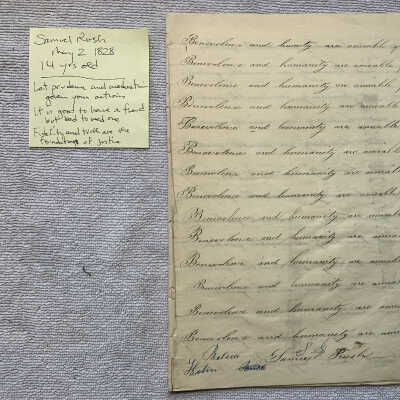 Samuel Rush
May 2 1828
14 yrs old
Let prudence and moderation
govern your actions
It is great to have a friend
but bad to need one
Fidelity and truth are the
foundations of justice
Benevolence and humanity are amiable
Benevolence and humanity are amiable
Benevolence and humanity are amiable
Benevolence and humanity are amiable
Benevolence and humanity are amiable
Benevolence and humanity are amiable
Benevolence and humanity are amiable
Benevolence and humanity are amiable
Benevolence and humanity are amiable
Benevolence and humanity are amiable
Benevolence and humanity are amiable
Benevolence and humanity are
Benevolence and humanity are
Benevolence and humanity are
Samuel Rush